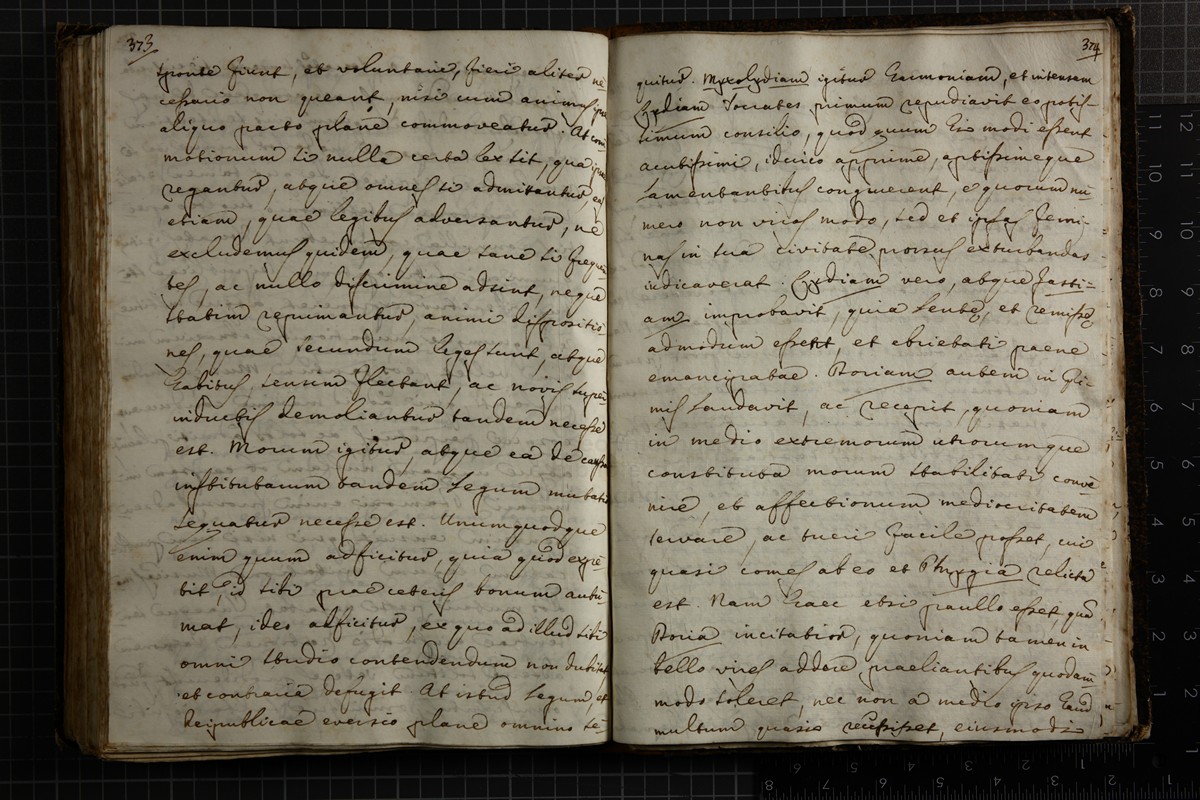 373
sponte fiunt, et voluntarie, fieri aliter ne-
cessario non queant, nisi cum animus ipse
aliquo pacto plane commoveatur. At com
motionum si nulla certa lex sit, qua ipsae
regantur, atque omnes si admittantur, eas
etiam, quae legibus adversantur, ne
excludemus quidem, quae sane si frequen
tes, ac nullo discrimine adsint, neque
statim reprimantur, animi dispositio
nes, quae secundum leges sunt, atque
habitus, sensim flectant, ac novis super
inductis demoliantur tandem necesse
est. Morum igitur, atque ea de causa
institutarum tandem legum mutatio
sequatur necesse est. Unumquodque
enim quum adficitur, quia quod expe-
tit, id sibi prae ceteris bonum autu-
mat, ideo adficitur, ex quo ad illud sibi
omni studio contendendum non dubitat
et contraria defugit. At istud legum et
Reipublicae eversio plane omnino se-
374
quitur. Myxolydiam igitur Harmoniam, et intensam
Lydiam Socrates primum repudiavit eo potis-
simum consilio, quod quum Eis modi essent
acutissimi, idcirco apprime, aptissimeque
lamentantibus congruerent, e quorum nu-
mero non viros modo, sed et ipsas femi-
nas in sua civitate prorsus exturbandas
iudicaverat. Lydiam vero, atque Iasti-
am improbavit, quia lentę, et remissę
admodum essent, et ebrietati paene
emancipatae. Doriam autem in pri-
mis laudavit, ac recepit, quoniam
in medio extremorum utrorumque
constituta morum stabilitati conve-
nire, et affectionum mediocritatem
servare, ac tueri facile posset, cui
quasi comes ab eo et Phrygia relicta
est. Nam haec etsi paullo esset, quam
Doria incitatior, quoniam tamen in
bello vires addere praeliantibus quodam
modo soleret, nec non a medio ipso haud
multum quasi recessisset, eiusmodi